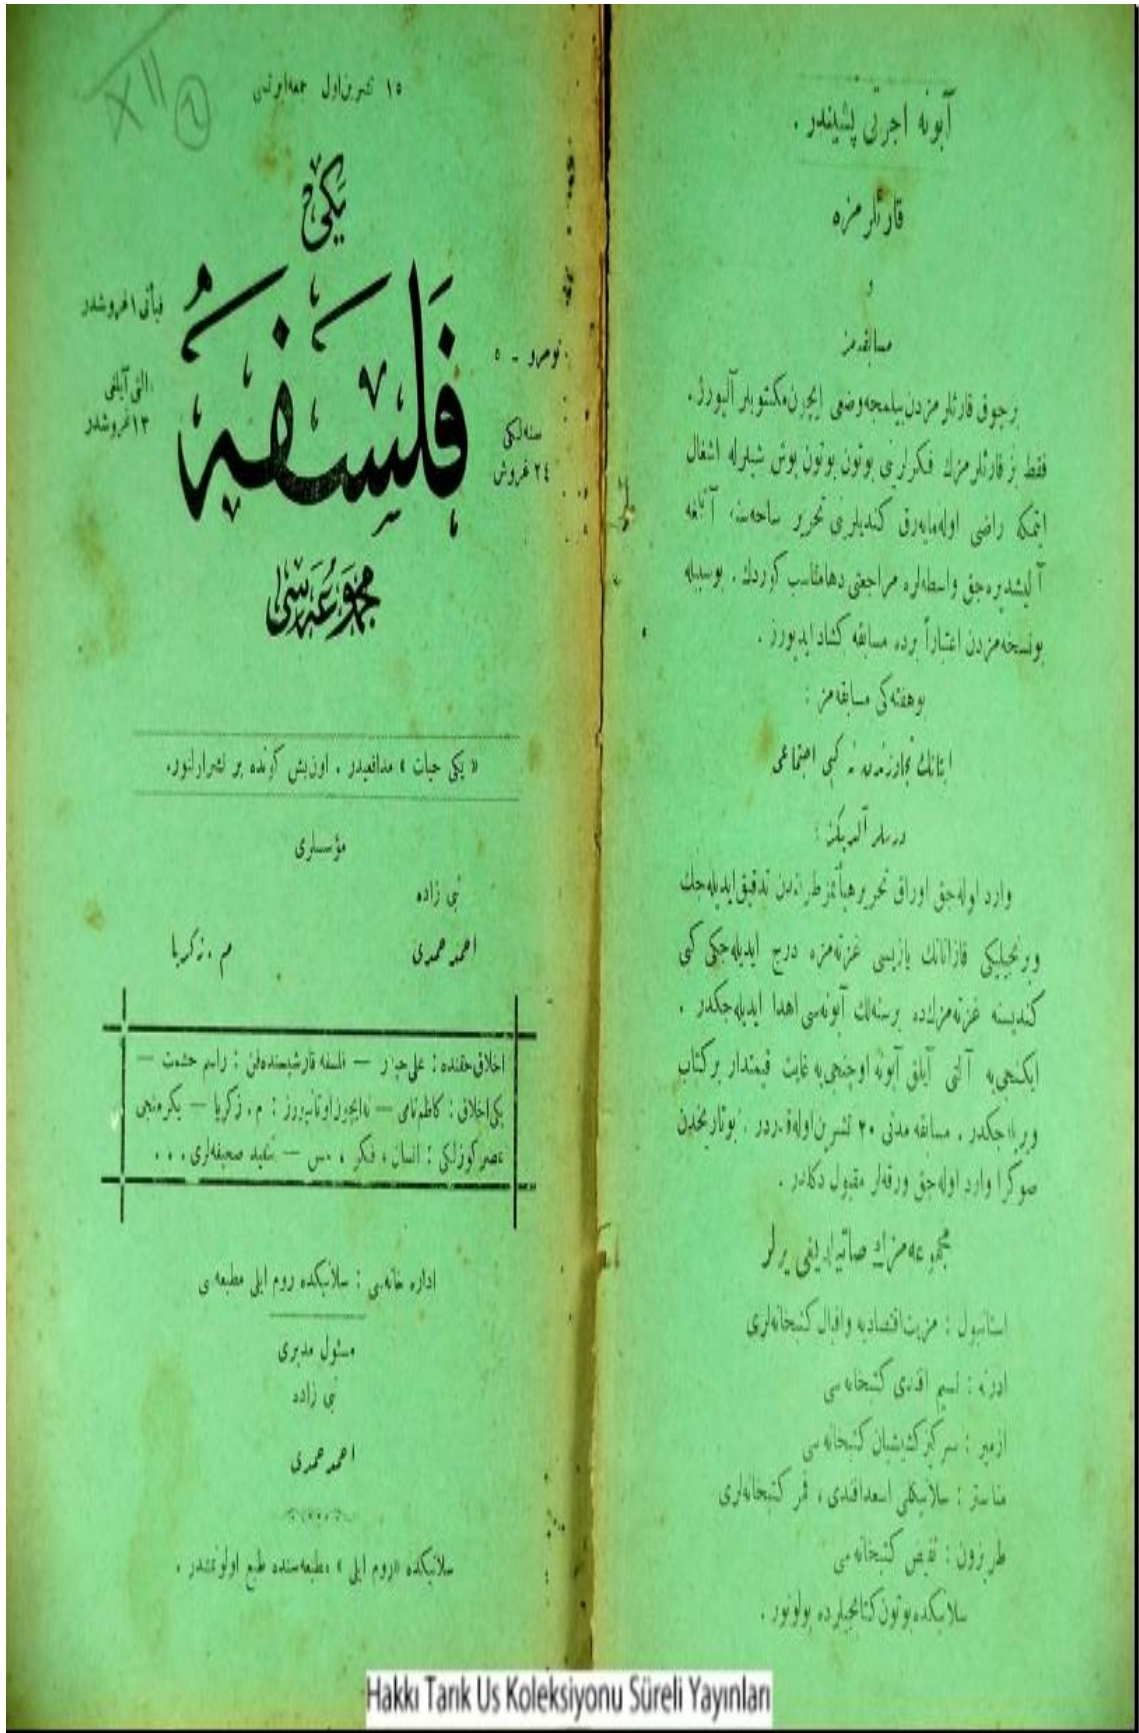 آبونه اجرتی پشیندر .
قارئلرمزه
و
مسابقه‌مز
برچوق قارئلرمزدن بیلمجه وضعی ایچون مکتوبلر آلیورز .
فقط بز قارئلرمزك فکرلرینی بوتون بوتون بوش شیلرله اشغال
ایتمکه راضی اوله‌مایه‌رق کندیلرینی تحریر ساحه‌سنه
آلیشدیره‌جق واسطه‌لره مراجعتی دها مناسب کوردك . بوسبیله
بونسخه‌مزدن اعتباراً برده مسابقه کشاد ایدیورز .
بو هفته‌کی مسابقه‌مز :
کبی اجتماعی
وارد اوله‌جق اوراق تحریر هیأتمز طرفندن تدقیق ایدیله‌جك
وبرنجیلیکی قازانانك یازیسی غزته‌مزه درج ایدیله‌جکی کبی
کندیسنه غزته‌مزك‌ده برسنه‌لك آبونه‌سی اهدا ایدیله‌جکدر .
ایکنجی‌یه آلتی آیلق آبونه اوچنجی‌یه غایت قیمتدار برکتاب
ویریله‌جکدر . مسابقه مدتی ۲۰ تشرین اوله قدردر . بوتاریخدن
صوکرا وارد اوله‌جق ورقه‌لر مقبول دکلدر .
مجموعه‌مزك صاتیلدیغی یرلر
استانبول : مزیت اقتصادیه واقبال کتبخانه‌لری
ادرنه : نسیم افندی کتبخانه‌سی
ازمیر : سرکیز کشیشیان کتبخانه‌سی
مناستر : سلانیکلی اسعد افندی ، قمر کتبخانه‌لری
طربزون : کتبخانه‌سی
سلانیکده بوتون کتابجیلرده بولونور .
۱۵ تشرین اول جمعه‌ایرتسی
یکی
فلسفه
مجموعه‌سی
نومرو - ۵
سنه‌لکی
۲٤ غروش
فیأتی ۱ غروشدر
التی آیلغی
۱۳ غروشدر
« یکی حیات » مدافعیدر . اون‌بش کونده بر نشر اولنور.
مؤسسلری
نبی زاده
احمد حمدی
م . زکریا
اخلاق حقنده : علی حیدر — فلسفه قارشیسنده دین : راسم حشمت —
یکی اخلاق : کاظم نامی — نه‌ایچون اوتانیورز : م . زکریا — یکرمنجی
عصر کوزلکی : انسان ، فکر ، — تنقید صحیفه‌لری . . .
اداره خانه‌سی : سلانیکده روم ایلی مطبعه‌سی
مسئول مدیری
نبی زاده
احمد حمدی
سلانیکده «روم ایلی» مطبعه‌سنده طبع اولونمشدر .
Hakkı Tarık Us Koleksiyonu Süreli Yayınları